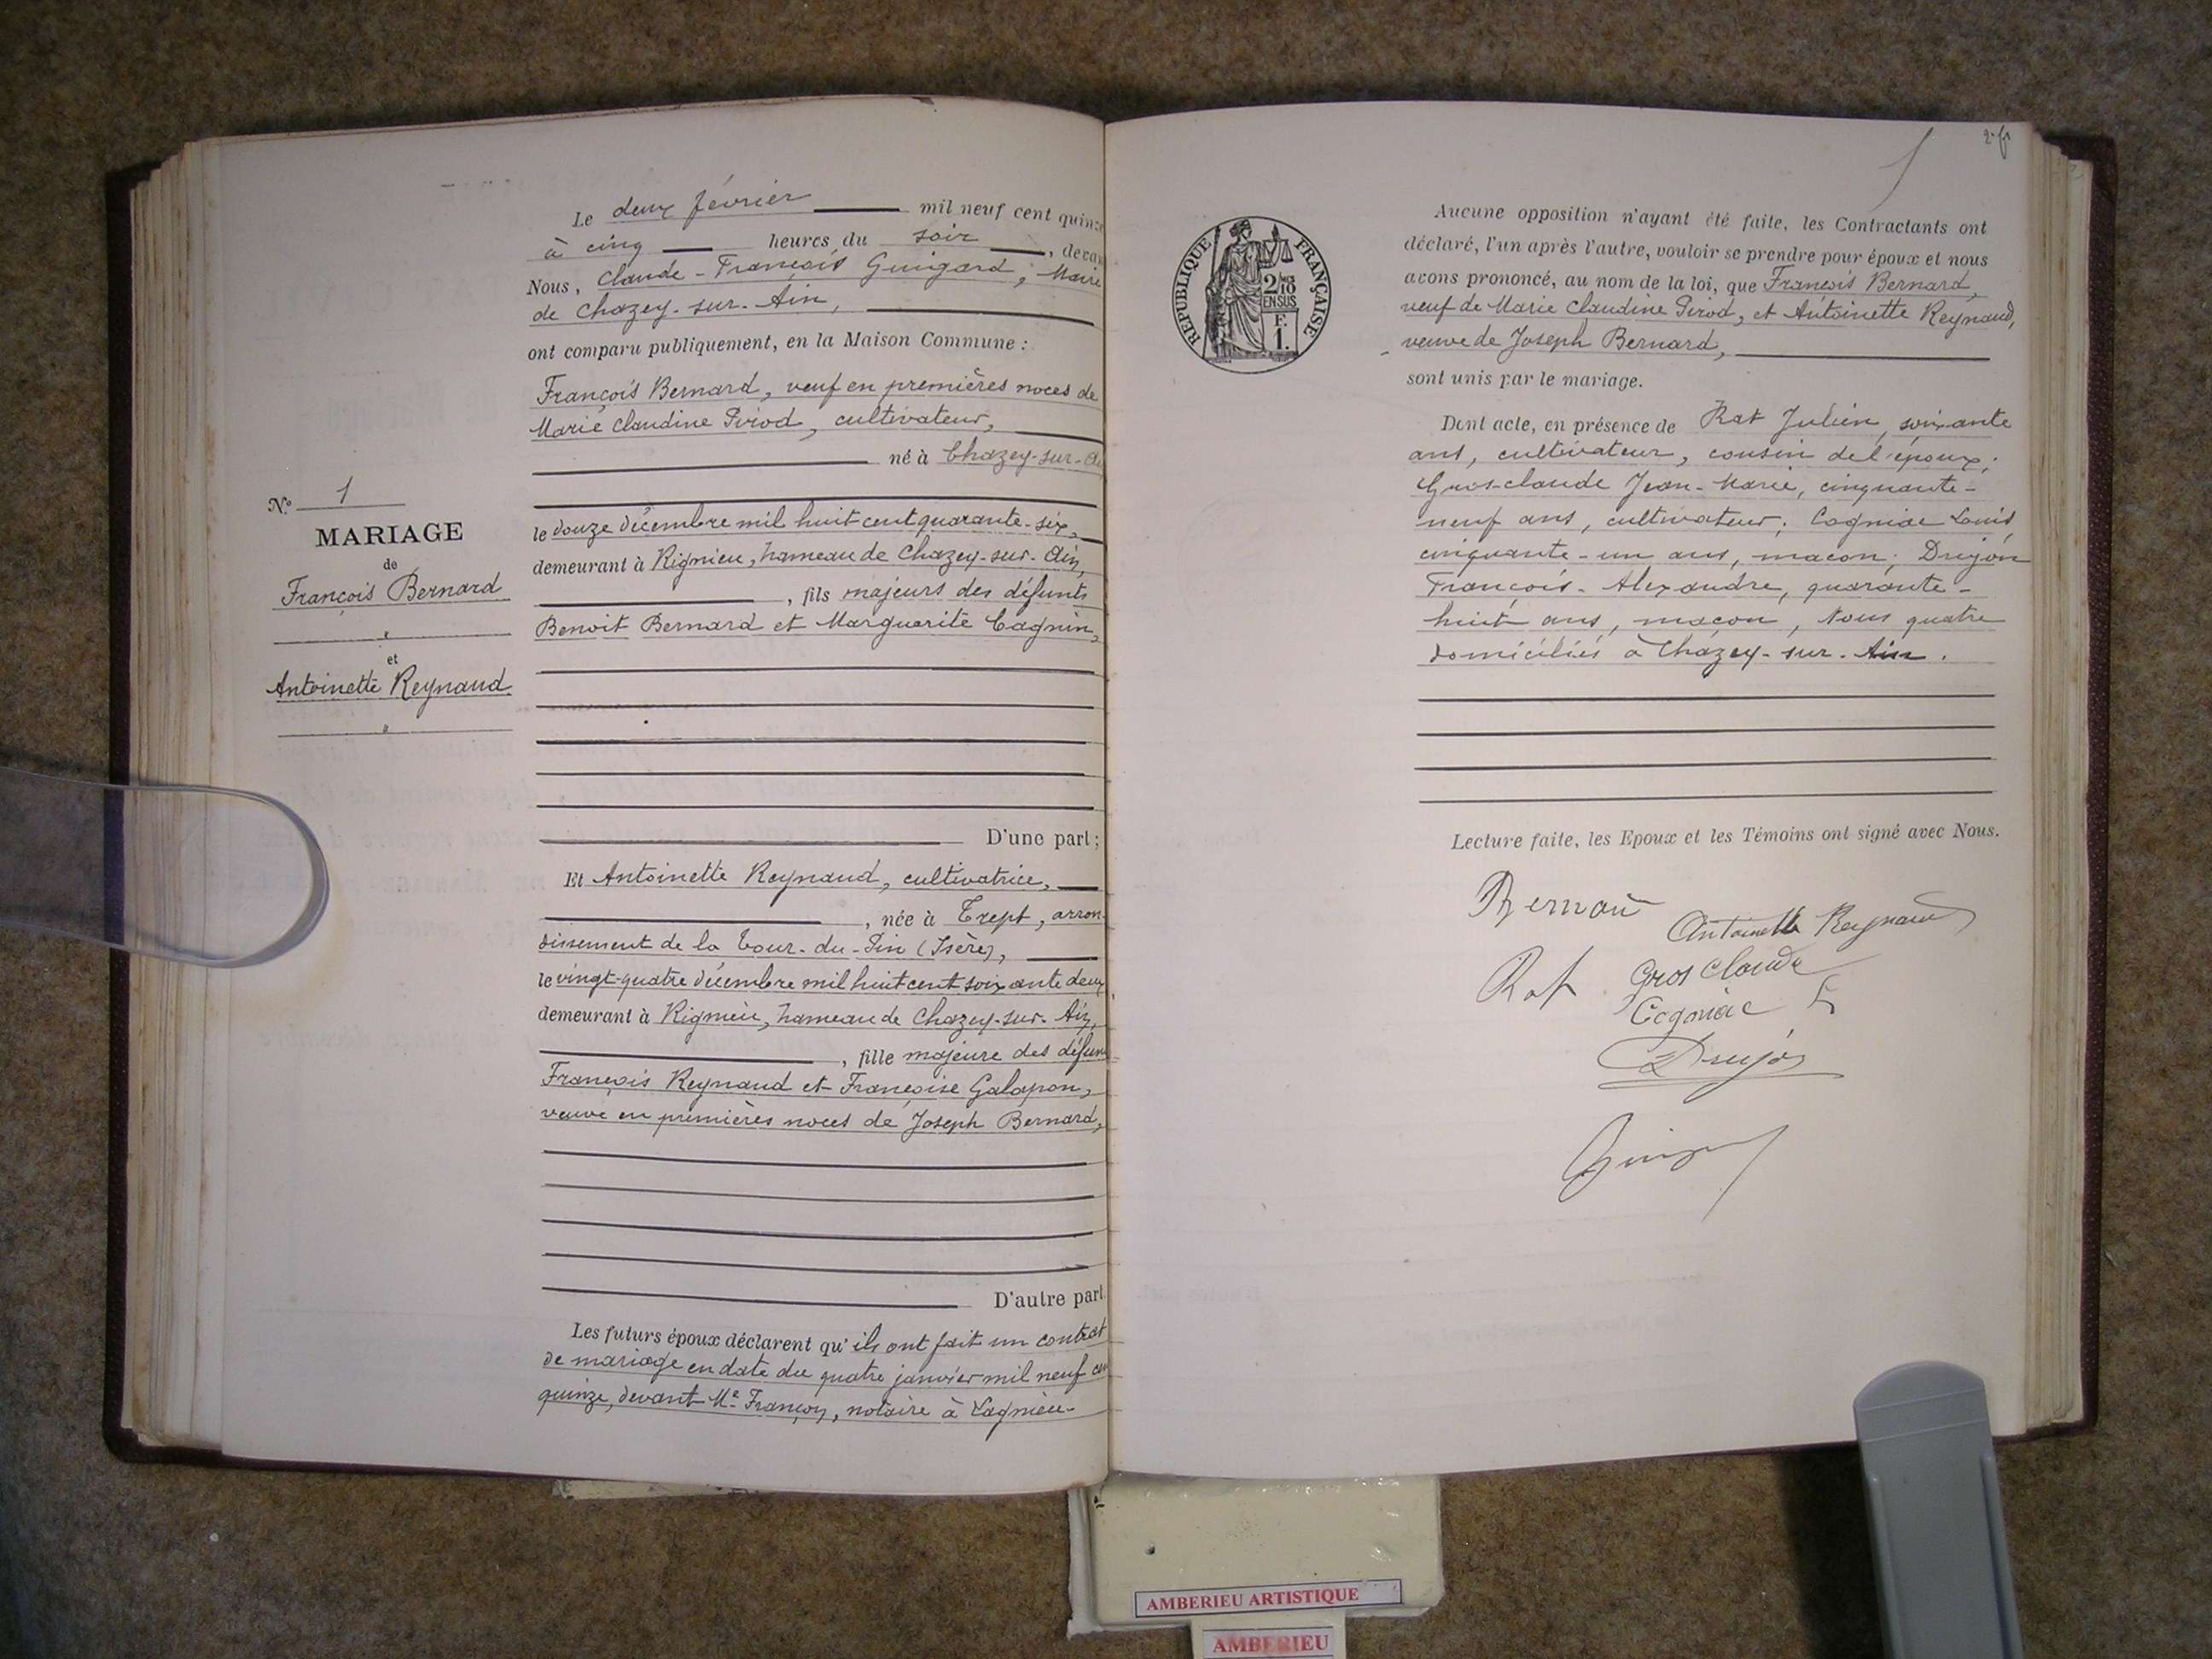 Le deux février mil neuf cent quinze
à cinq heures du soir, devan
Nous, Claude-François Guigard, Maire
de Chazey-sur-Ain,
ont comparu publiquement, en la Maison Commune :
François Bernard, veuf en premières noces de
Marie Claudine Pirod, cultivateur,
né à Chazey-sur-Ai
le douze décembre mil huit cent quarante-six,
demeurant à Rignieu, hameau de Chazey-sur-Ain,
, fils majeurs des défunts
Benoit Bernard et Marguerite Cagnin,
D'une part ;
Et Antoinette Reynaud, cultivatrice,
, née à Trept, arron-
dissement de la Tour-du-Pin (Isère),
le vingt-quatre décembre mil huit cent soixante deux
demeurant à Rignieu, hameau de Chazey-sur-Ain,
, fille majeure des défun
François Reynaud et Françoise Galapon,
veuve en premières noces de Joseph Bernard,
D'autre part.
Les futurs époux déclarent qu'ils ont fait un contrat
de mariage en date du quatre janvier mil neuf cen
quinze, devant Me Françon, notaire à Lagnieu-
N° 1
MARIAGE
de
François Bernard
"
et
Antoinette Reynaud
"
REPUBLIQUE FRANÇAISE
2/10
EN SUS
F.
1.
Aucune opposition n'ayant été faite, les Contractants ont
déclaré, l'un après l'autre, vouloir se prendre pour époux et nous
avons prononcé, au nom de la loi, que François Bernard,
veuf de Marie Claudine Pirod, et Antoinette Reynaud,
veuve de Joseph Bernard,
sont unis par le mariage.
Dont acte, en présence de Rat Julien, soixante
ans, cultivateur, cousin de l'époux;
Gros-claude Jean-Marie, cinquante-
neuf ans, cultivateur; Cogniac Louis
cinquante-un ans, macon; Drujon
François-Alexandre, quarante-
huit ans, maçon, tous quatre
domiciliés à Chazey-sur-Ain.
Lecture faite, les Epoux et les Témoins ont signé avec Nous.
Bernard
Antoinette Reynaud
Rat
Gros Claude
Cogniac L
Drujon
AMBERIEU ARTISTIQUE
AMBERIEU